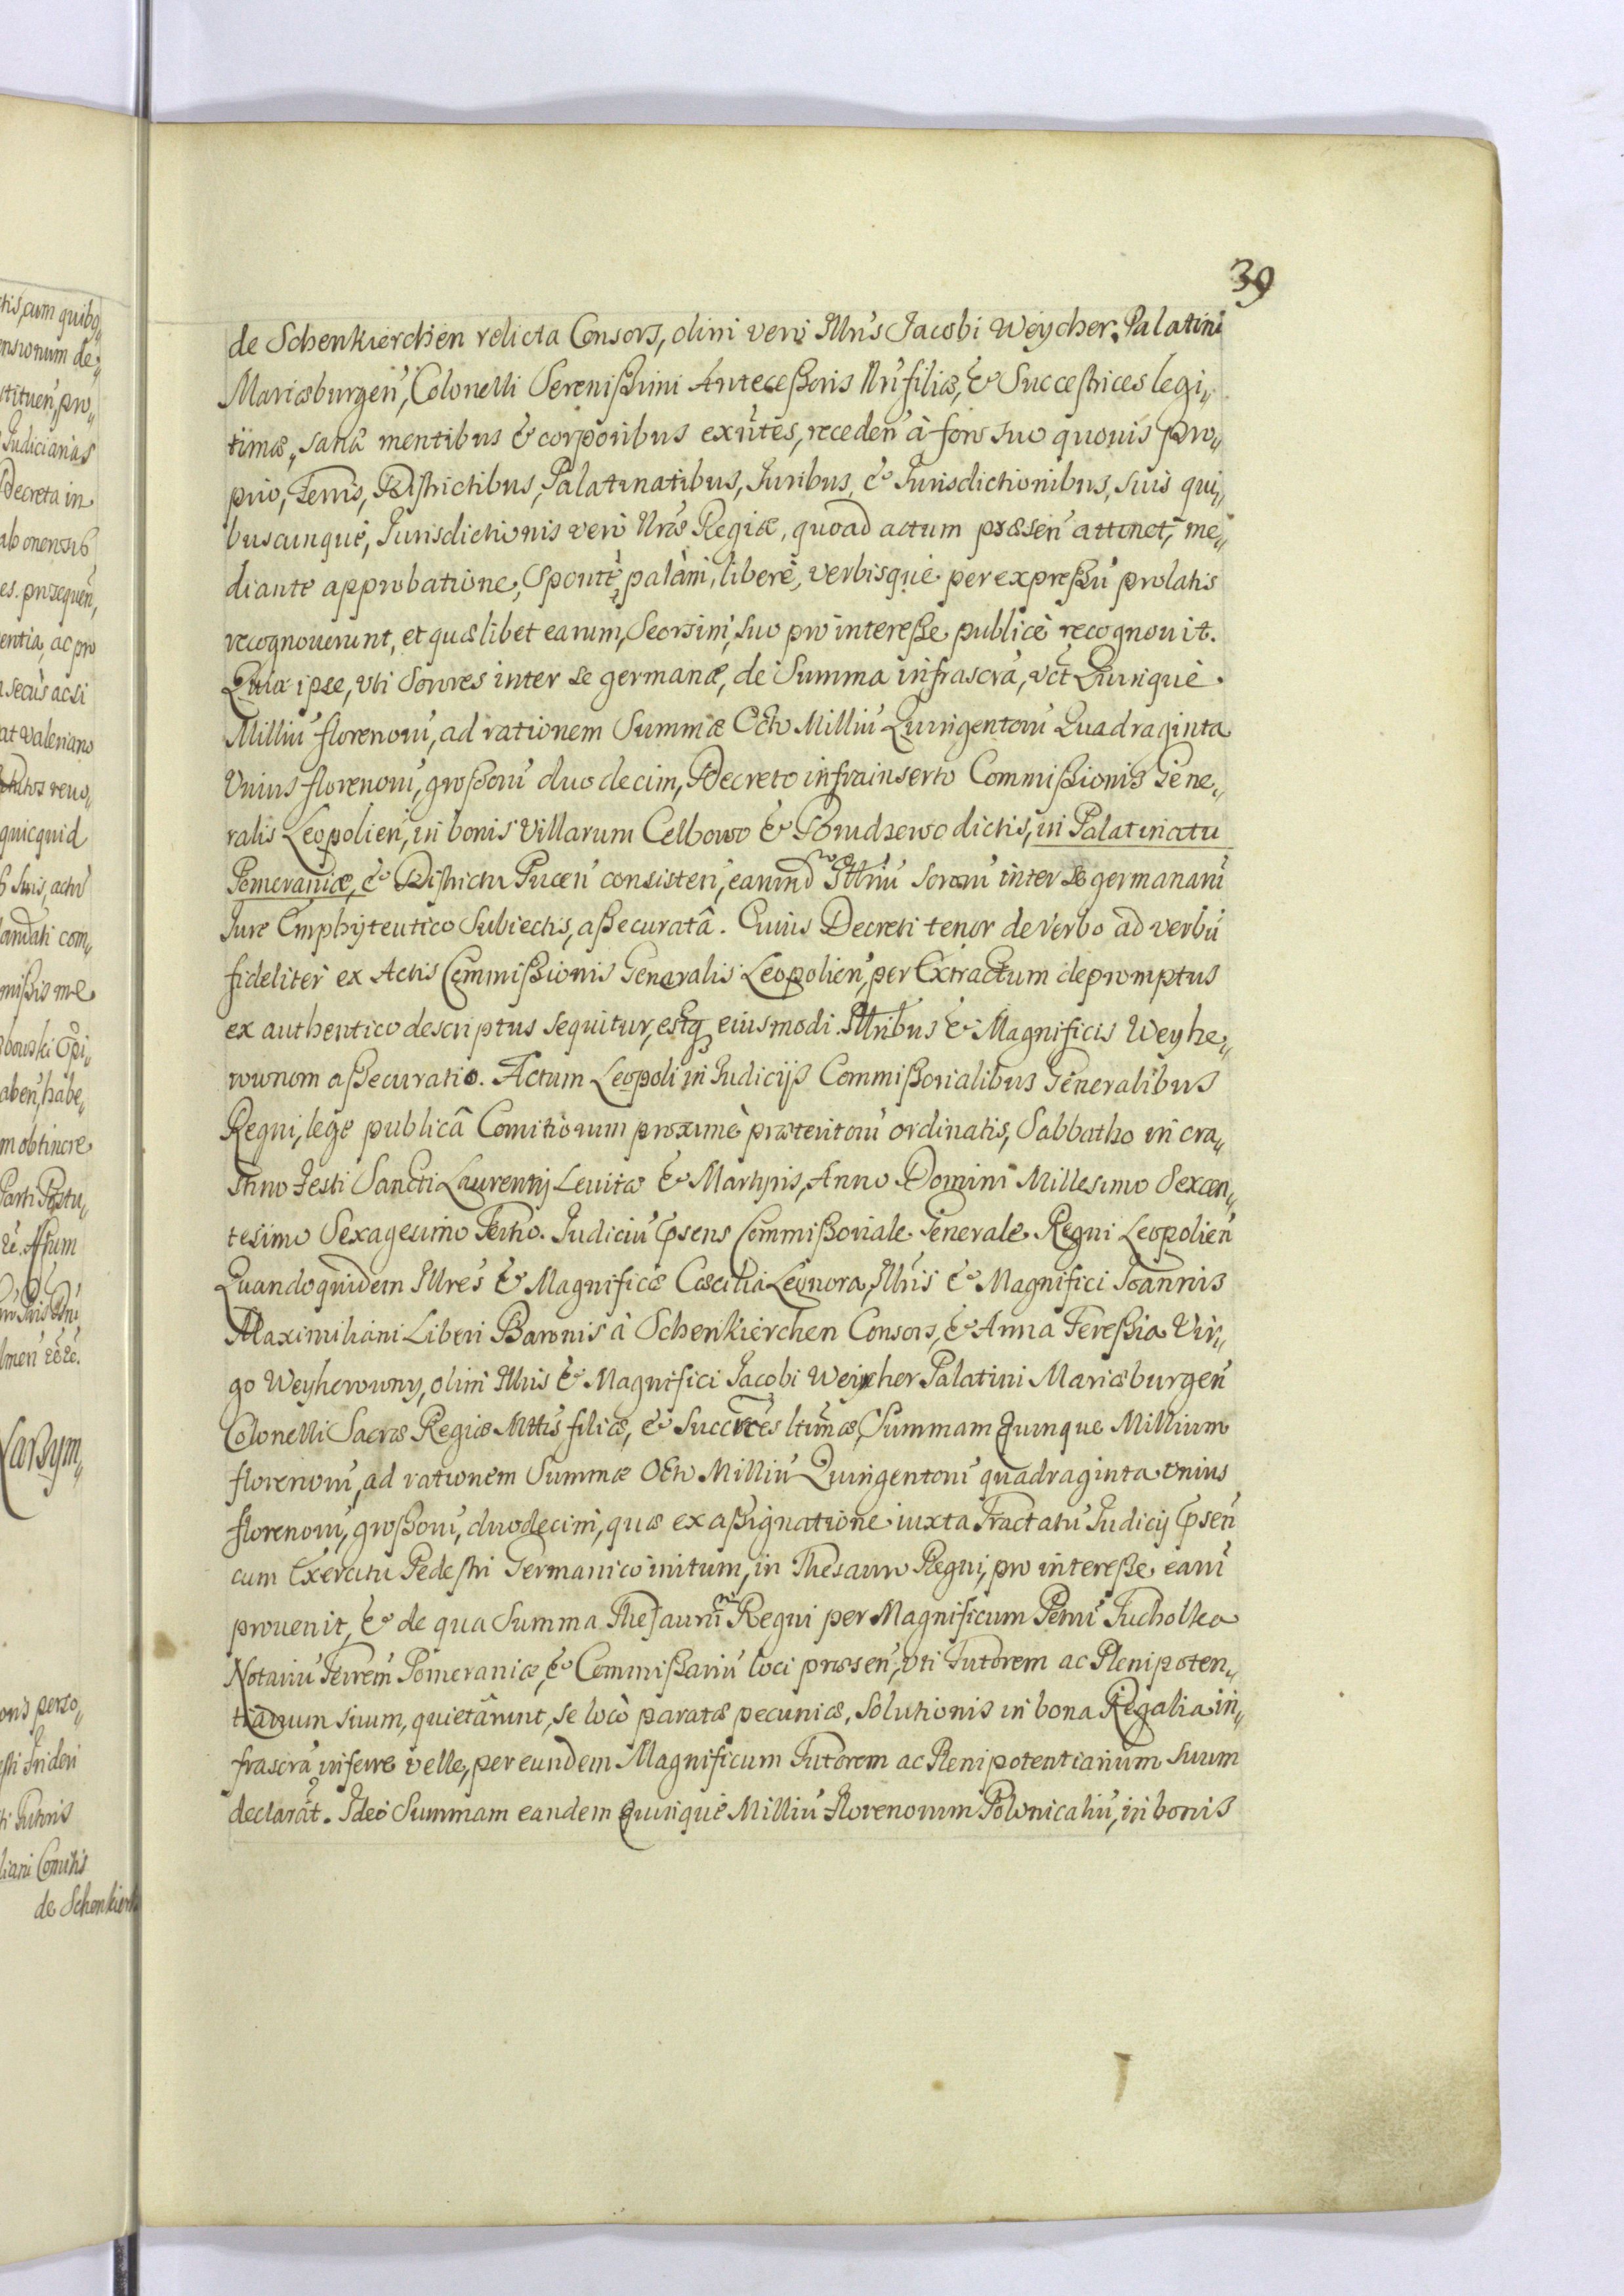 39
de Schenkierchen relicta Consors, olim verò Illris Jacobi Weycher, Palatini
Mariæburgen̄, Colonelli Serenißimi Anteceßoris Nri filiæ, & Succestrices legi„
timæ, sanæ mentibus & corporibus exūtes, receden̄ à foro suo quouis pro„
prio, Terris, Districtibus, Palatinatibus, Juribus, & Jurisdictionibus, suis qui„
buscunque, Jurisdictionis verò Nræ Regiæ, quoad actum præsen̄ attinet, me„
diante approbatione, Spontè, palàm, liberè, verbisque per expreßū prolatis
recognouerunt, et quælibet earum, Seorsim, suo pro intereße publicè recognouit.
Quia ipsæ, vti Sorores inter se germanæ, de Summa infrascrā, vct Quinque
Milliū florenorū, ad rationem Summæ Octo Milliū Quingentorū Quadraginta
Vnius florenorū, großorū duodecim, Decreto infrainserto Commißionis Gene„
ralis Leopolien̄, in bonis Villarum Celbowo & Brudzewo dictis, in Palatinatu
Pomeraniæ, & Districtu Pucen̄ consisten̄, earund Illriū Sororū inter se germanarū
Jure Emphyteutico Subiectis, aßecuratâ. Cuius Decreti tenor de verbo ad verbū
fideliter ex Actis Commißionis Generalis Leopolien̄, per Extractum depromptus
ex authentico descriptus sequitur, estq eiusmodi. Illribus & Magnificis Weyhe„
rownom aßecuratio. Actum Leopoli in Judicijs Commißorialibus Generalibus
Regni, lege publicâ Comitiorum proximè præteritorū ordinatis, Sabbatho in cra„
stino Festi Sancti Laurentij Leuitæ & Martyris, Anno Domini Millesimo Sexcen„
tesimo Sexagesimo Tertio. Judiciū psens Commißoriale Generale Regni Leopolien̄
Quandoquidem Illres & Magnificæ Cæcilia Leonora, Illris & Magnifici Joannis
Maximiliani Liberi Baronis à Schenkierchen Consors, & Anna Tereßia Vir„
go Weyherowny, olim Illris & Magnifici Jacobi Weycher Palatini Mariæburgen̄
Colonelli Sacræ Regiæ Mttis filiæ, & Succrces ltimæ, Summam Quinque Millium
florenorū, ad rationem Summæ Octo Milliū Quingentorū quadraginta vnius
florenorū, großorū, duodecim, quæ ex aßignatione iuxta Tractatū Judicij psen̄
cum Exercitu Pedestri Germanico initum, in Thesauro Regni, pro intereße earū
prouenit, & de qua Summa Thesaurū Regni per Magnificum Petrū Tucholka
Notariū Terrem Pomeraniæ, & Commißariū loci præsen̄, vti Tutorem ac Plenipoten„
tiarium suum, quietârunt, se locò paratæ pecuniæ, solutionis in bona Regalia in„
frascrā inferre velle, per eundem Magnificum Tutorem ac Plenipotentiarium suum
declarāt. Ideò Summam eandem Quinque Milliū Florenorum Polonicaliū, in bonis